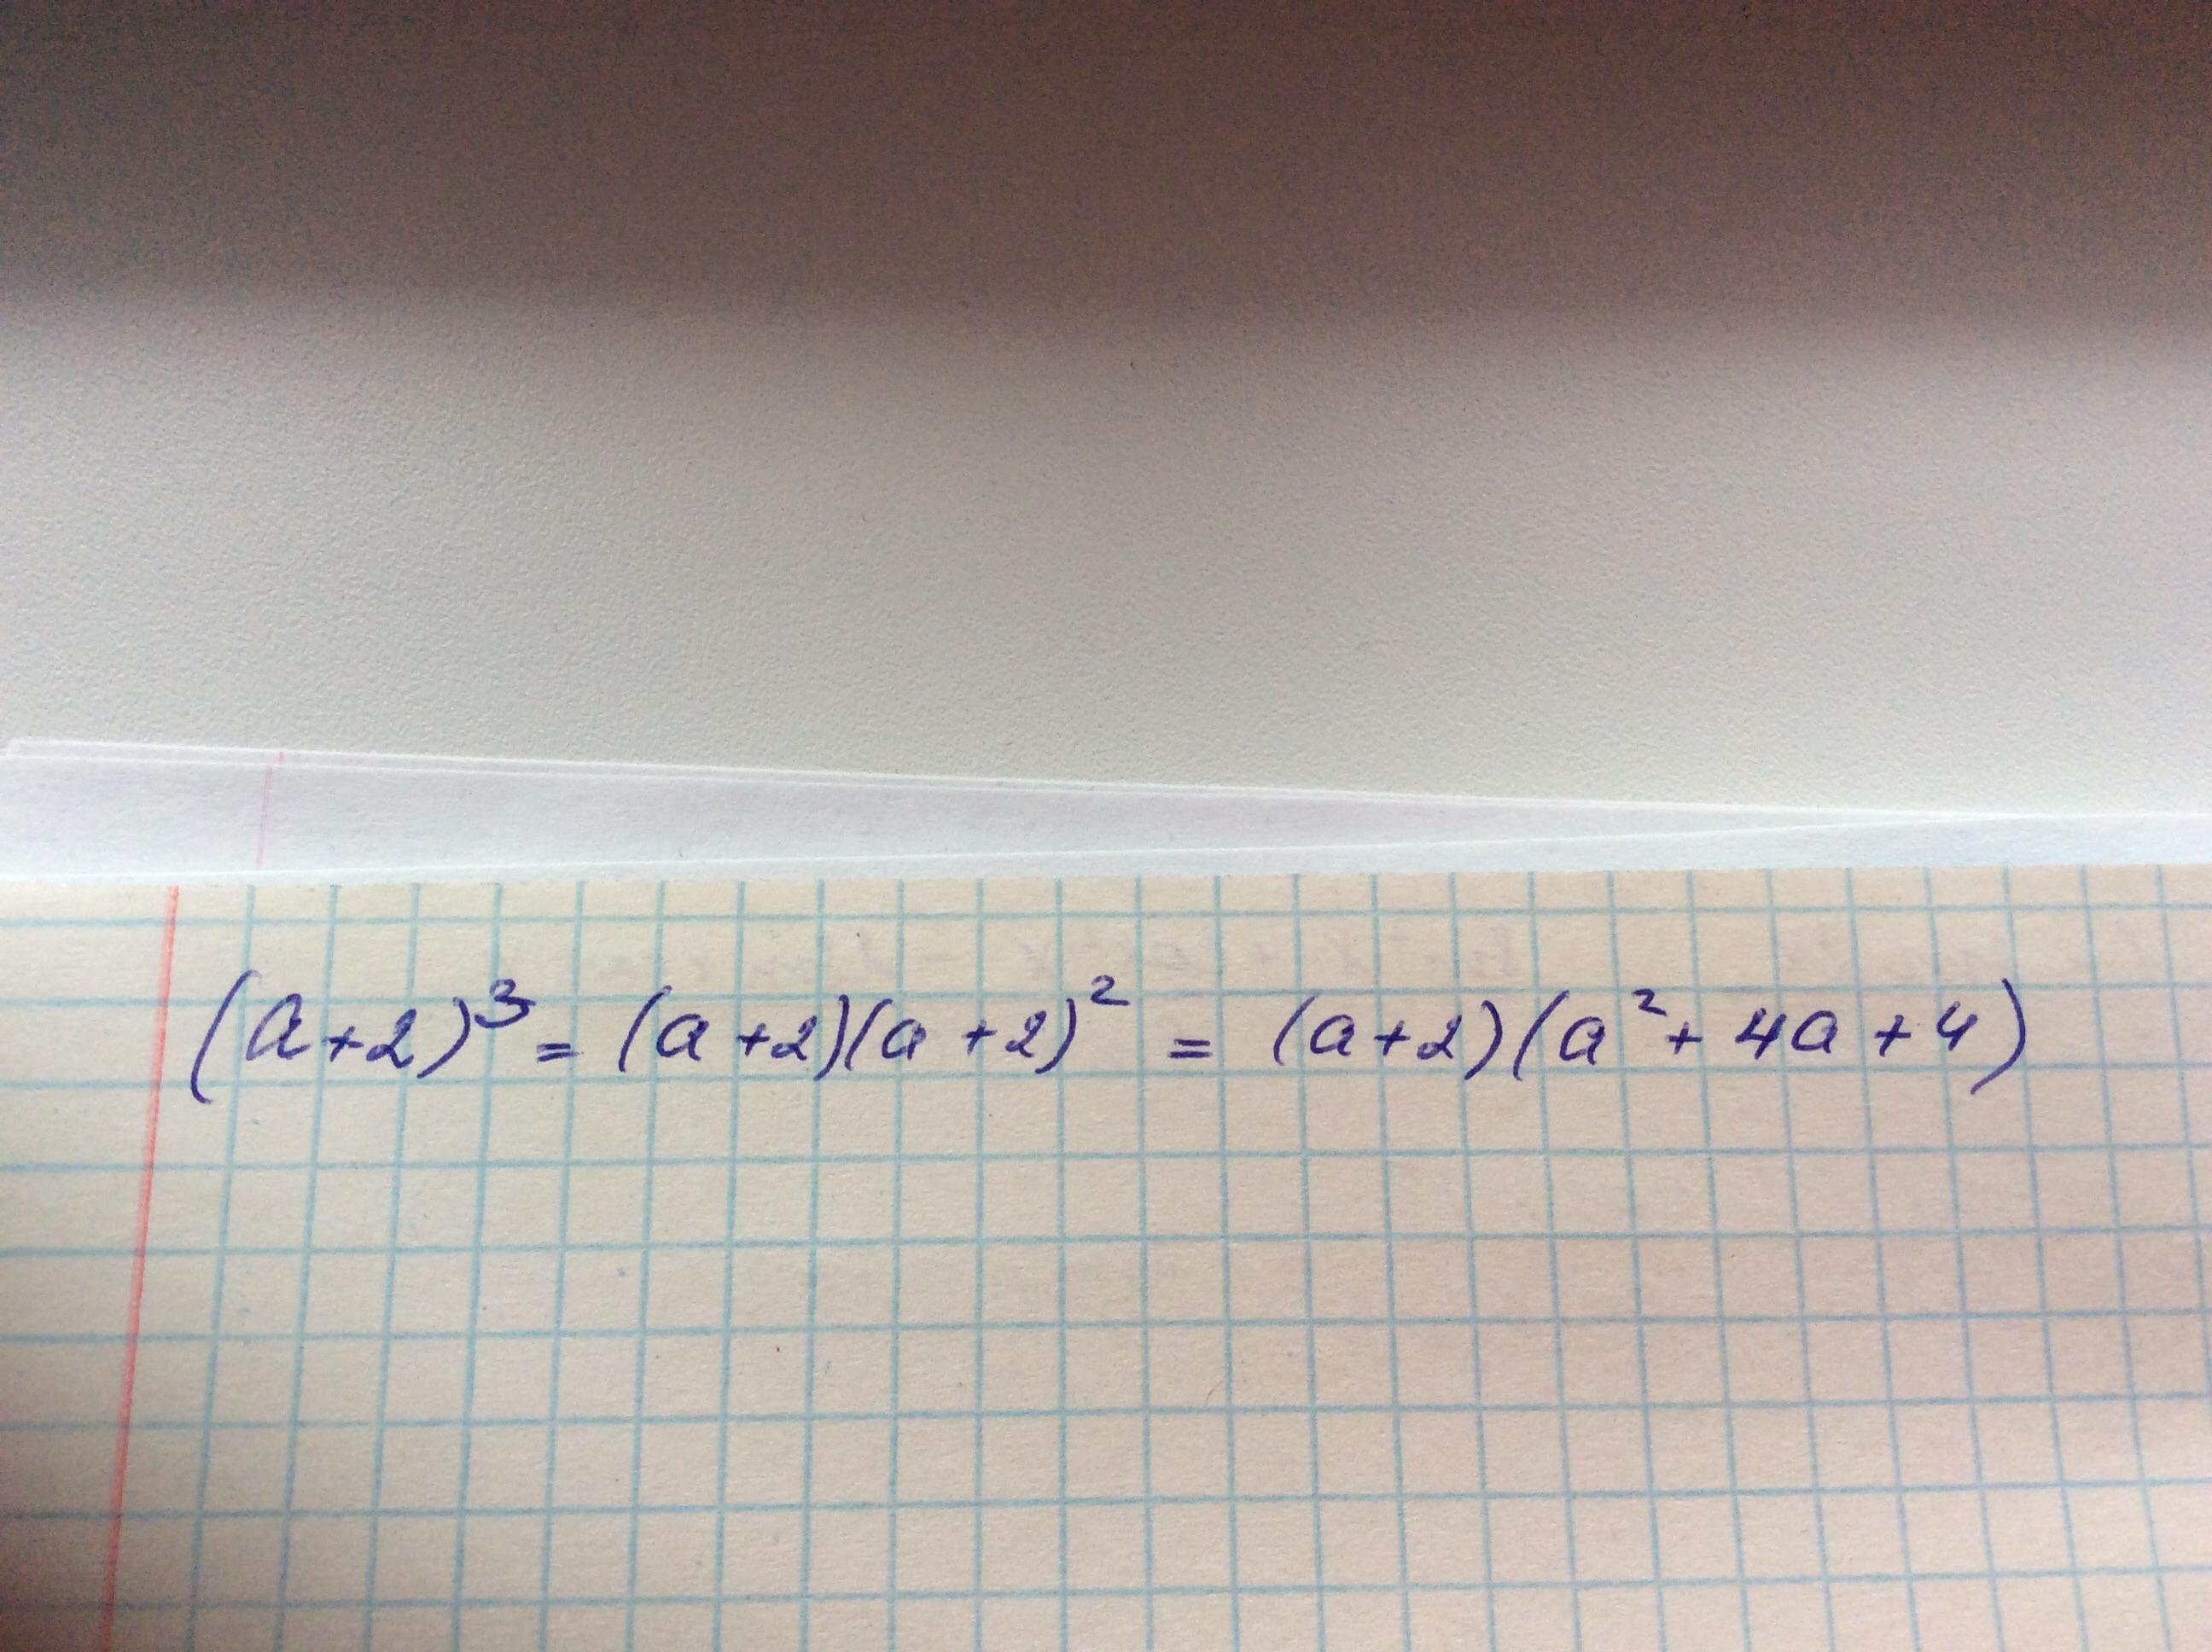 (a+2)³ = (a+2)(a+2)² = (a+2)(a²+4a+4)